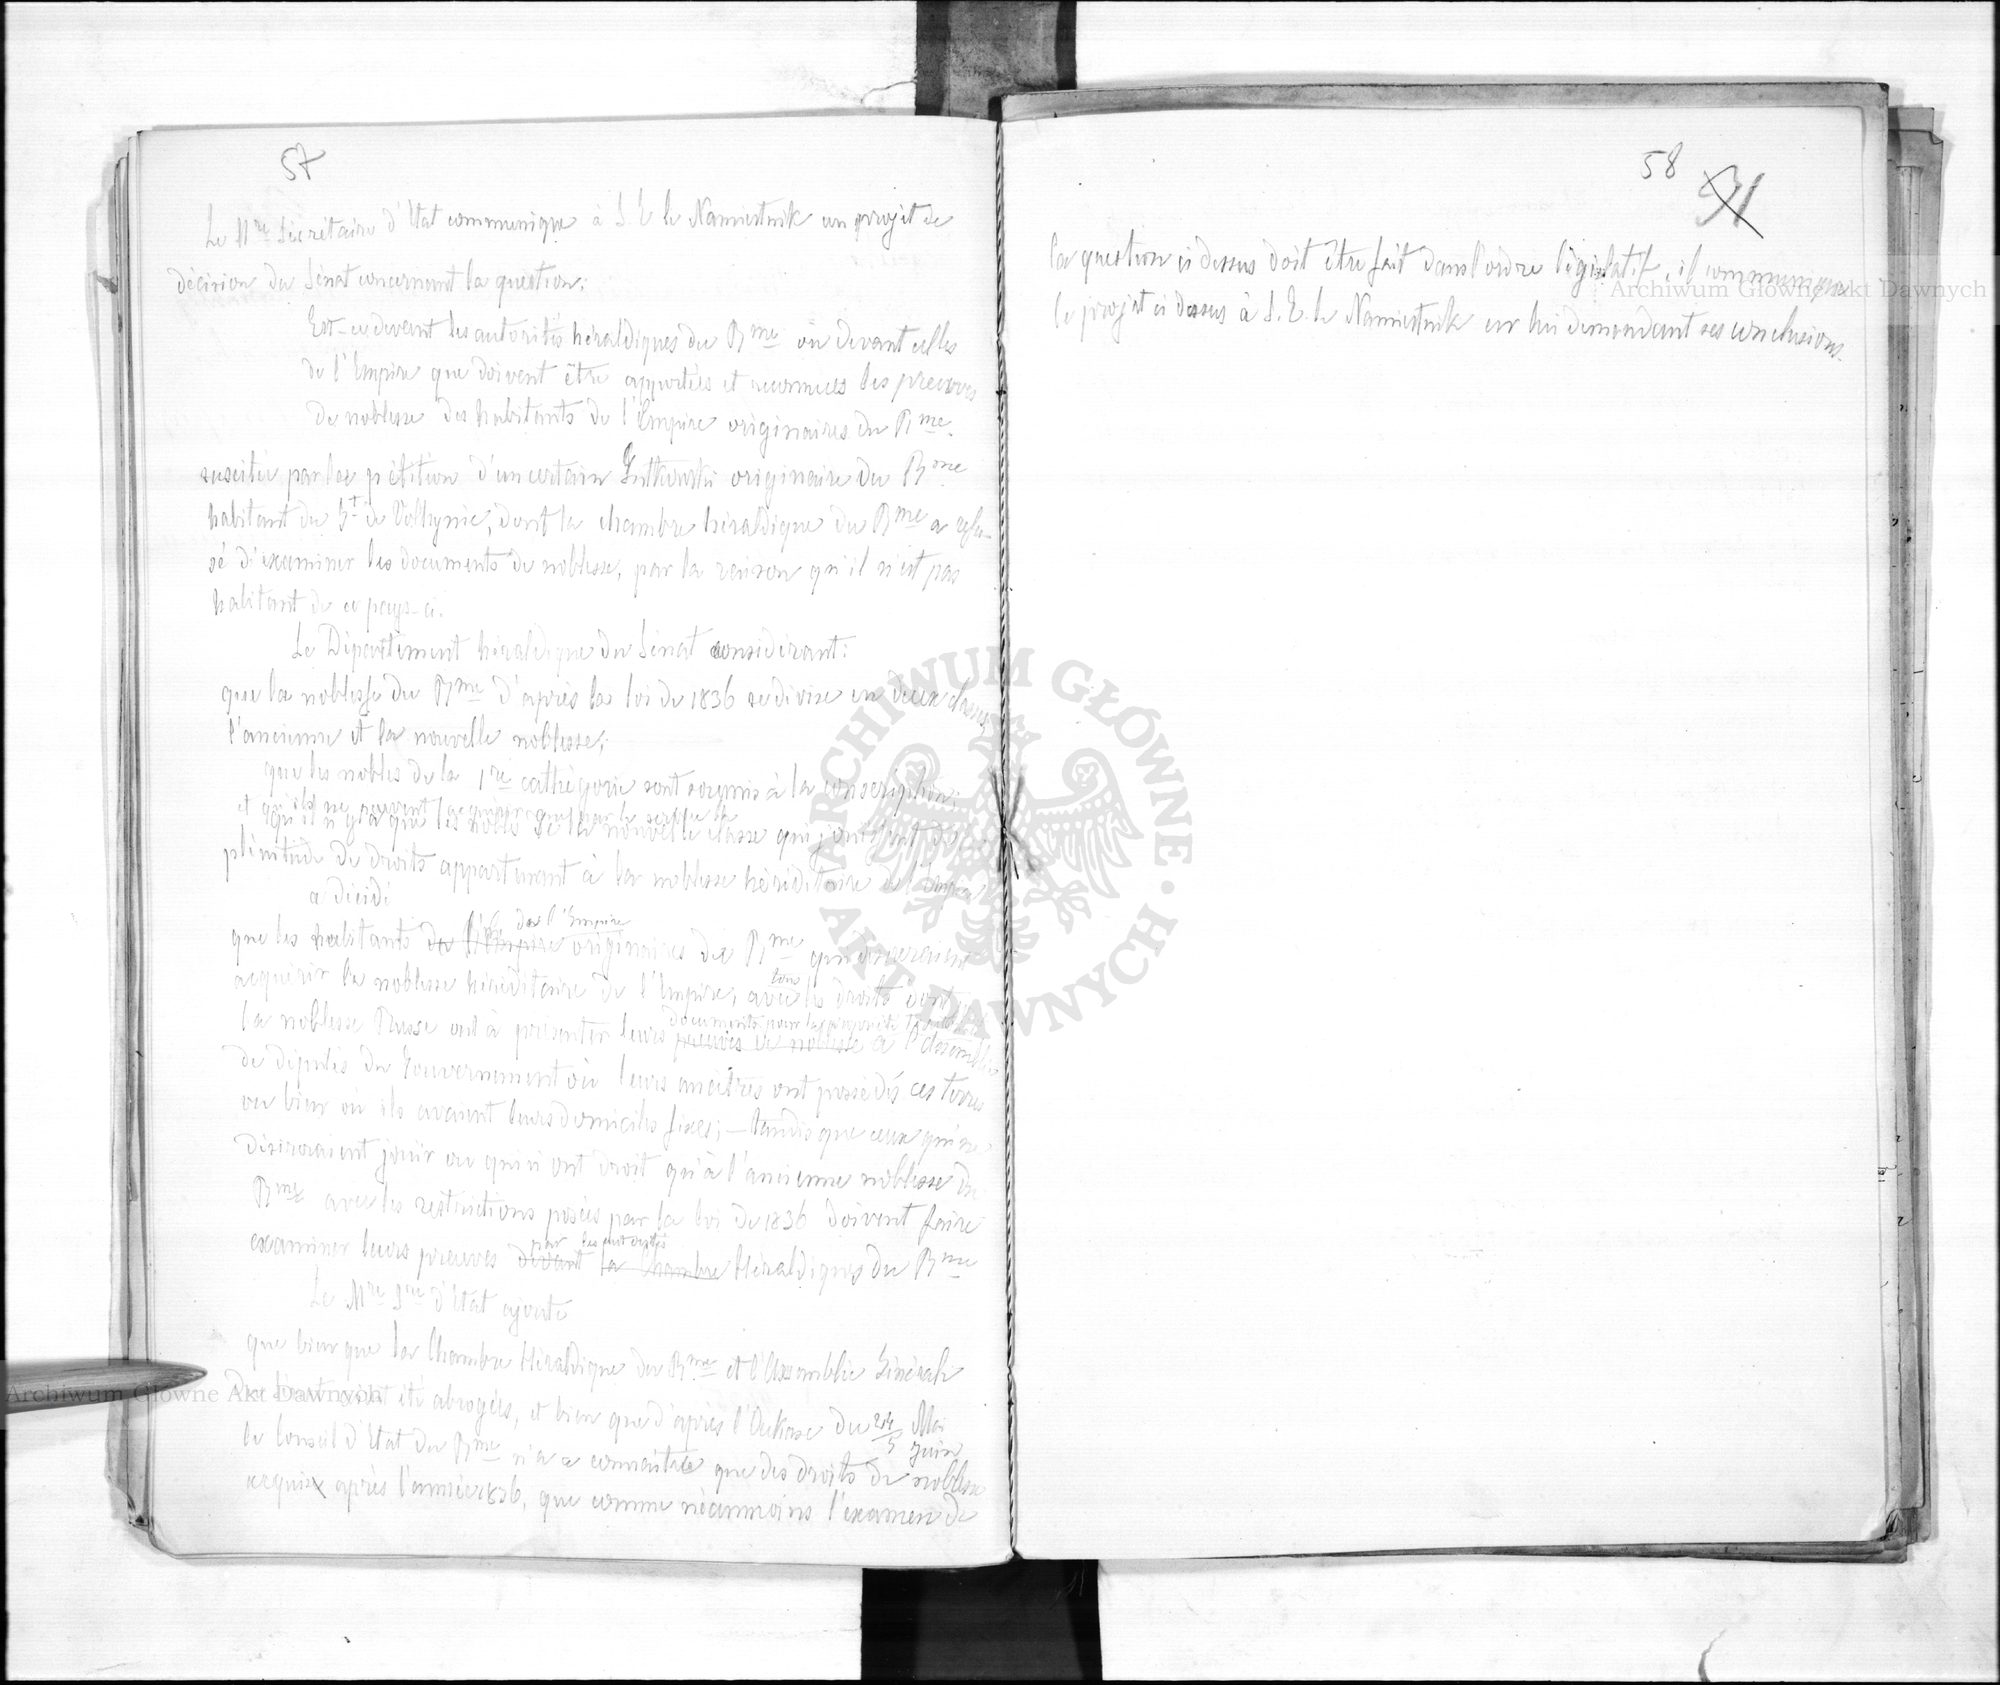 57
Le Mre Secrétaire d'Etat communique à S. E le Namiestnik un projet de
décision du Sénat concernant la question:
Est-ce devant les autorités héraldiques du Rme ou devant celles
de l'Empire que doivent être apportées et reconnues les preuves
de noblesse des habitants de l'Empire originaires du Rme.
suscitée par la pétition d'un certain Gutkowski originaire du Rme
habitant du Gt de Volhynie, dont la chambre héraldique du Rme a refu-
sé d'examiner les documents de noblesse, par la raison qu'il n'est pas
habitant de ce pays-ci.
Le Département héraldique du Sénat considérant:
que la noblesse du Rme d'après la loi de 1836 se divise en deux classes,
l'ancienne et la nouvelle noblesse;
que les nobles de la 1re cathégorie sont soumis à la conscription;
et qu'ils ne peuvent acquérir que par le service la
qu'il n'y a que les nobles de la nouvelle classe qui jouissent de
plénitude de droits appartenant à la noblesse héréditaire de l'Empire
a décidé
que les habitants de l'Empire originaires du Rme qui désireraient
de l'Empire
acquérir la noblesse héréditaire de l'Empire, avec tous les droits dont
la noblesse Russe ont à présenter leurs preuves de noblesse à l'Assemblée
documents pour la propriété
de députés du Gouvernement où leurs ancêtres ont possédés ces terres
ou bien où ils avaient leurs domiciles fixes; – tandis que ceux qui ne
désireraient jouir ou qui n'ont droit qu'à l'ancienne noblesse du
Rme avec les restrictions posées par la loi de 1836 doivent faire
par les autorités
examiner leurs preuves devant la Chambre Héraldiques du Rme
Le Mre Sre d'Etat ajoute
que bien que la Chambre Héraldique du Rme et l'Assemblée Générale
du Sénat aient été abrogées, et bien que d'après l'Oukase du 24/5 Mai/Juin
le Conseil d'Etat du Rme n'a à connaitre que des droits de noblesse
acquis après l'année 1836, que comme néanmoins l'examen de
58
91
la question ci dessus doit être fait dans l'ordre législatif, il communique
le projet ci dessus à S. E. le Namiestnik en lui demandant ses conclusions.
Archiwum Główne Akt Dawnych
Archiwum Główne Akt Dawnych
ARCHIWUM GŁÓWNE AKT DAWNYCH